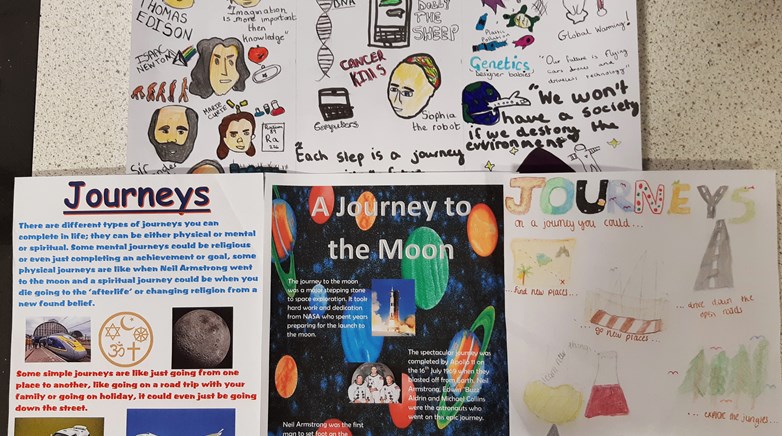 THOMAS
EDISON
"Imagination
is more important
then
knowledge"
DNA
DOLLY
THE
SHEEP
Plastic
Pollution
Global Warming!
ISAAC
NEWTON
CANCER
KILLS
Genetics
designer babies
"Our future is flying
cars drones and
driverless technology"
MARIE
CURIE
Radium
Ra
Computers
Sophia
the robot
"We won't
have a society
if we destory the
environment"
Sir
"Each step is a journey
Journeys
There are different types of journeys you can
complete in life; they can be either physical or mental
or spiritual. Some mental journeys could be religious
or even just completing an achievement or goal, some
physical journeys are like when Neil Armstrong went
to the moon and a spiritual journey could be when you
die going to the 'afterlife' or changing religion from a
new found belief.
Some simple journeys are like just going from one
place to another, like going on a road trip with your
family or going on holiday, it could even just be going
down the street.
A Journey to
the Moon
The journey to the moon
was a major stepping stone
to space exploration. It took
hard work and dedication
from NASA who spent years
preparing for the launch to
the moon.
The spectacular journey was
completed by Apollo 11 on
the 16th July 1969 when they
blasted off from Earth. Neil
Armstrong, Edwin 'Buzz'
Aldrin and Michael Collins
were the astronauts who
went on the epic journey.
Neil Armstrong was the first
man to set foot on the
JOURNEYS
on a journey you could...
find new places...
... go new places...
... drive down the
open roads
... explore the jungles.